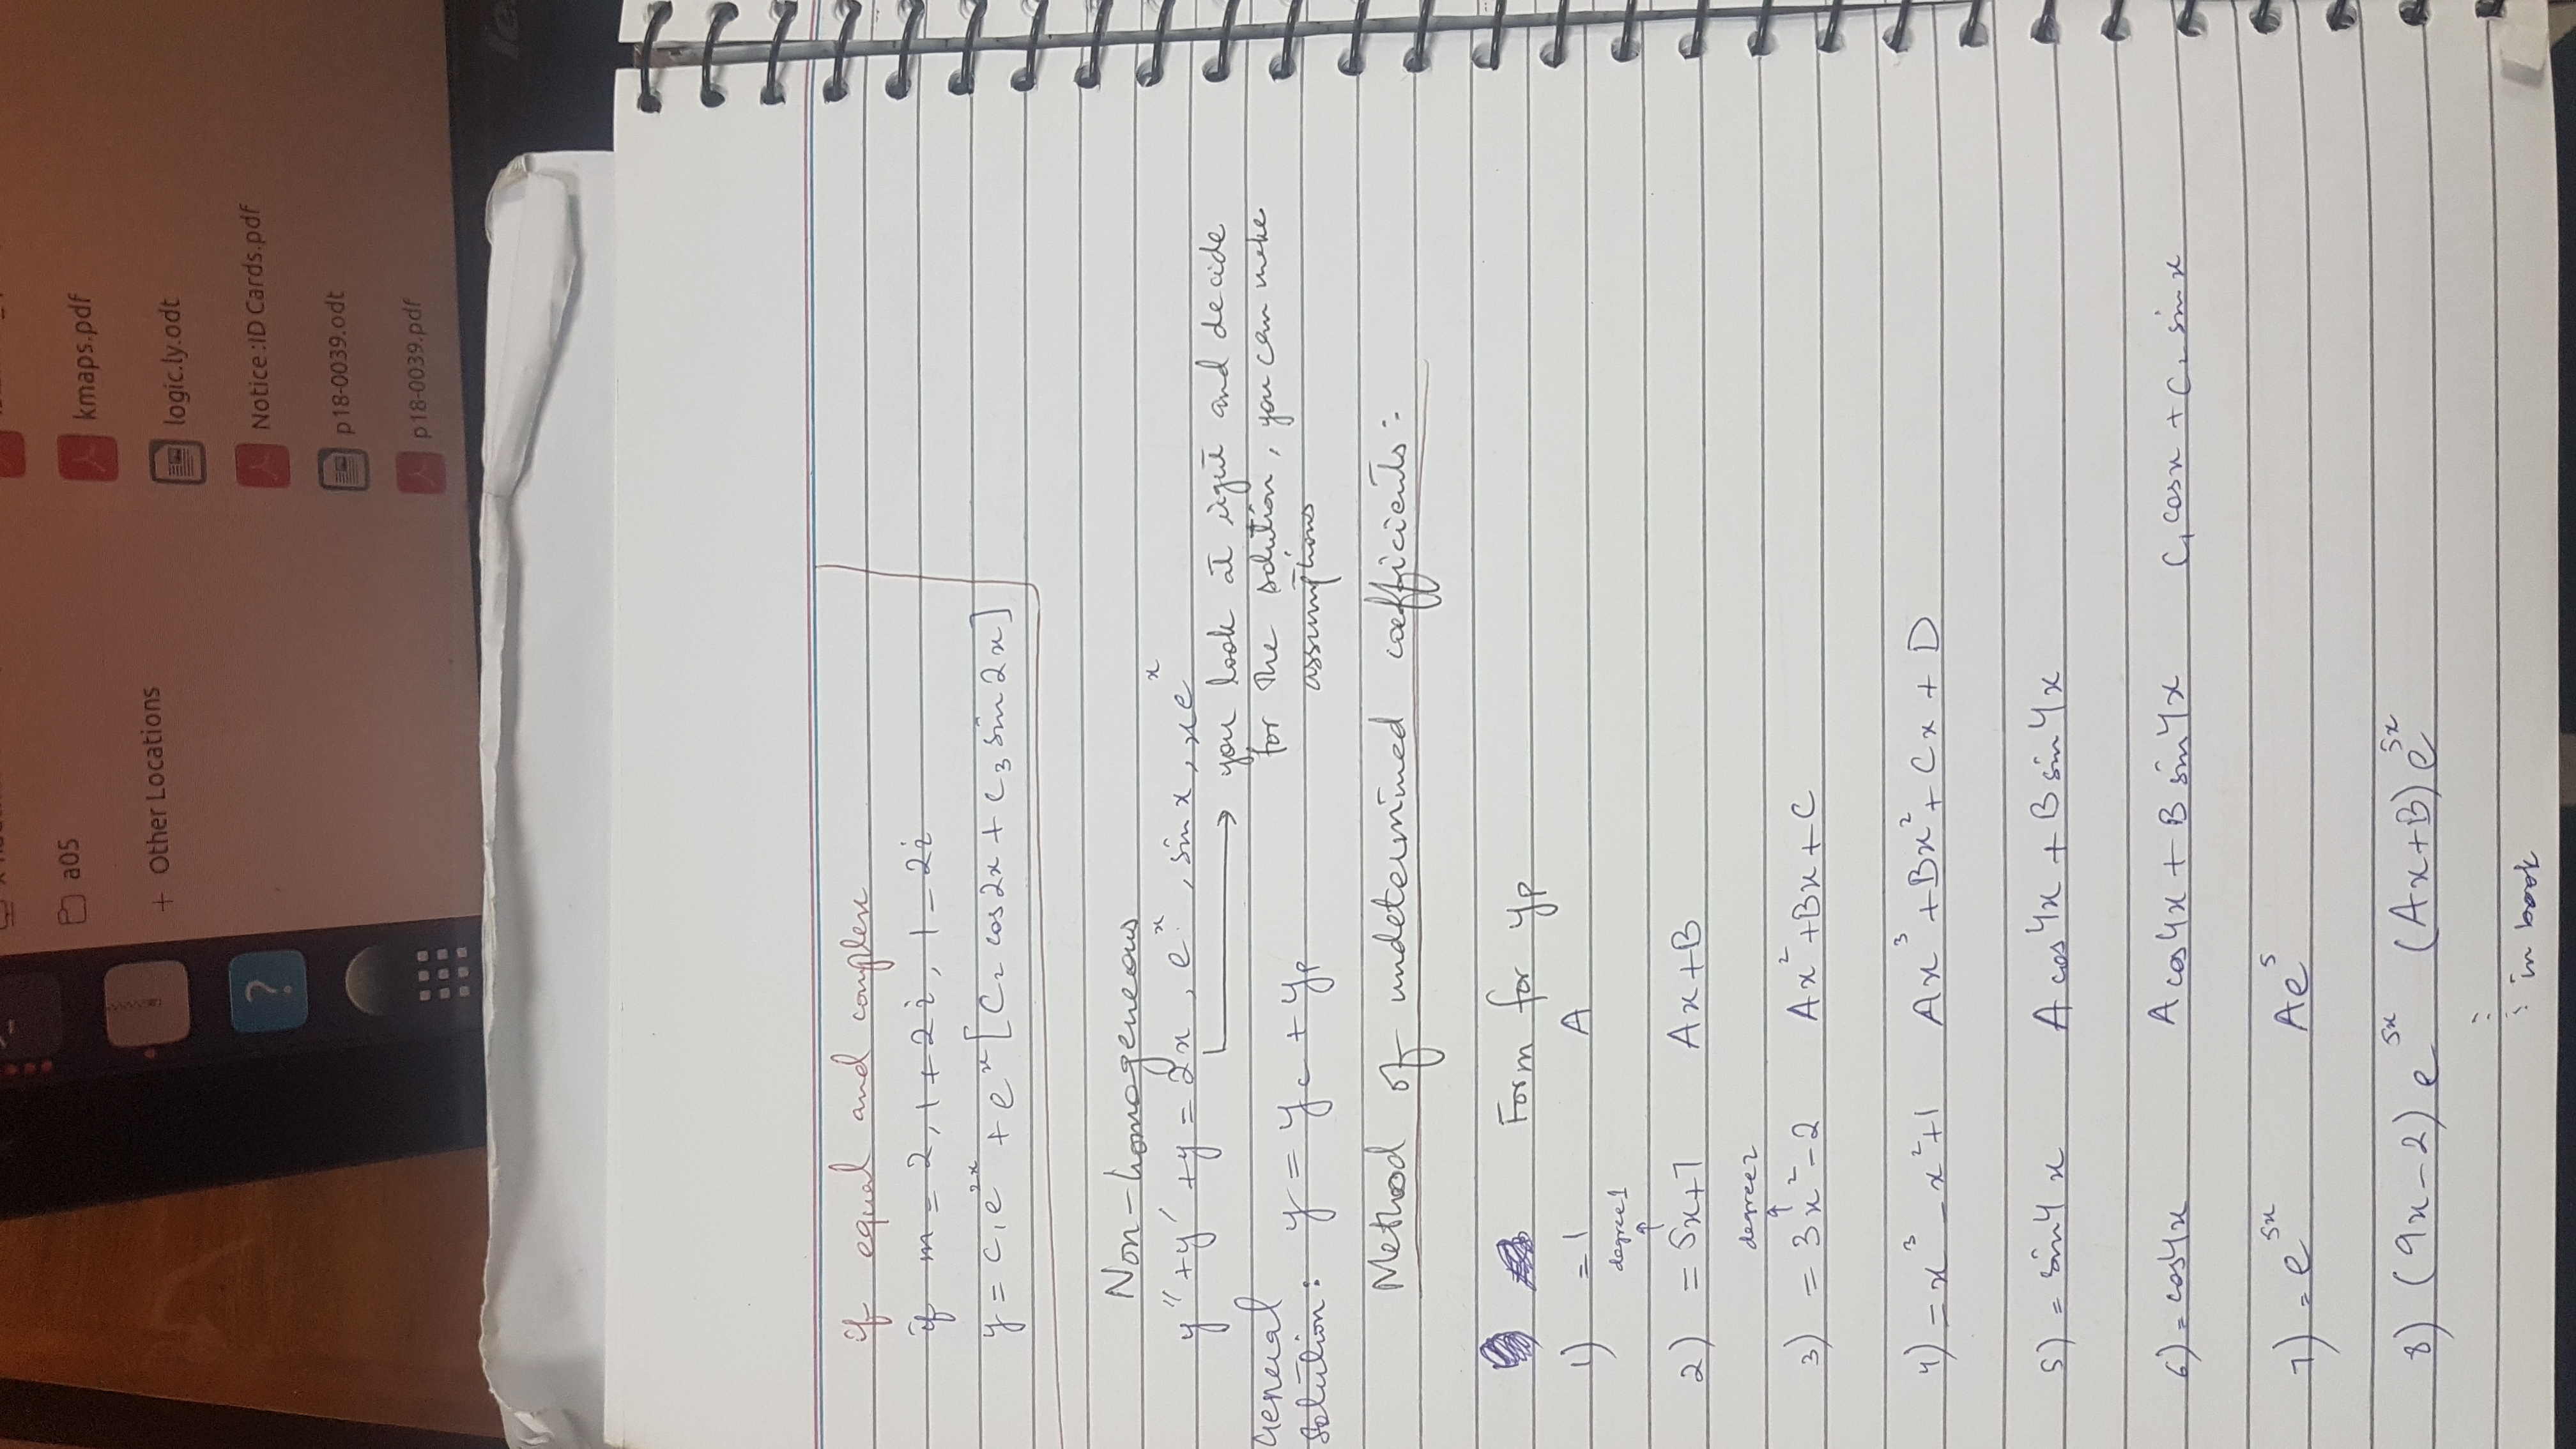 a05
+ Other Locations
kmaps.pdf
logic.ly.odt
Notice :ID Cards.pdf
p18-0039.odt
p18-0039.pdf
le
if equal and complex
if m = 2, 1 + 2i, 1 - 2i
y = c₁e²ˣ + eˣ [C₂ cos2x + C₃ sin2x]
Non-homogeneous
y'' + y' + y = 2x, eˣ, sin x, xeˣ
→ you look at right and decide
for the solution, you can make
assumptions
General
Solution: y = y_c + y_p
Method of undetermined coefficients:
Form for y_p
1) = 1 A
degree1
↑
2) = 5x+7 Ax+B
degree2
↑
3) = 3x²-2 Ax²+Bx+C
4) = x³ - x²+1 Ax³+Bx²+Cx+D
5) = sin4x A cos4x + B sin4x
6) = cos4x A cos4x + B sin4x C₁cosx + C₂ sinx
7) = e⁵ˣ Ae⁵
8) (9x-2) e⁵ˣ (Ax+B) e⁵ˣ
⋮ in book